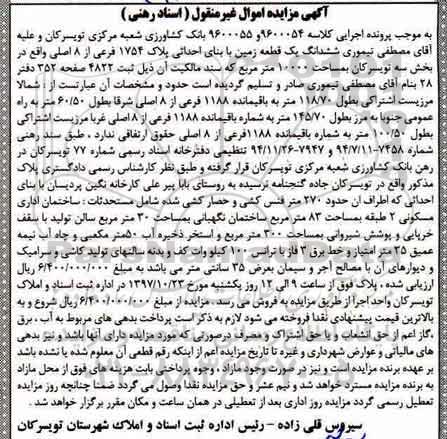 آگهی مزایده اموال غیرمنقول ( اسناد رهنی )
به موجب پرونده اجرایی کلاسه ۹۶۰۰۰۵۴ و ۹۶۰۰۰۵۵ بانک کشاورزی شعبه مرکزی تویسرکان و علیه
آقای مصطفی تیموری ششدانگ یک قطعه زمین با بنای احداثی پلاک ۱۷۵۴ فرعی از ۸ اصلی واقع در
بخش سه تویسرکان بمساحت ۱۰۰۰۰ متر مربع که سند مالکیت آن ذیل ثبت ۴۸۲۲ صفحه ۳۵۲ دفتر
۲۸ بنام آقای مصطفی تیموری صادر و تسلیم گردیده است حدود و مشخصات آن عبارتست از : شمالا
مرزیست اشتراکی بطول ۱۱۸/۷۰ متر به باقیمانده ۱۱۸۸ فرعی از ۸ اصلی شرقا بطول ۶۰/۵۰ متر به راه
عمومی جنوبا به مرز بطول ۱۴۵/۷۰ متر به شماره باقیمانده ۱۱۸۸ فرعی از ۸ اصلی غربا مرزیست اشتراکی
بطول ۱۰۰/۵۰ متر به شماره باقیمانده ۱۱۸۸ فرعی از ۸ اصلی حقوق ارتفاقی ندارد . طبق سند رهنی
شماره ۷۴۵۸-۹۴/۷/۱۱ و ۷۹۴۷-۹۴/۱۱/۲۶ تنظیمی دفترخانه اسناد رسمی شماره ۷۷ تویسرکان در
رهن بانک کشاورزی شعبه مرکزی تویسرکان قرار گرفته و طبق نظر کارشناس رسمی دادگستری پلاک
مذکور واقع در تویسرکان جاده گنجنامه نرسیده به روستای بابا پیر علی کارخانه نگین پردیسان با بنای
احداثی که اطراف آن حدود ۲۷۰ متر فنس کشی و حصار کشی شده شامل مستحدثات : ساختمان اداری
مسکونی ۲ طبقه بمساحت ۸۳ متر مربع ساختمان نگهبانی بمساحت ۳۰ متر مربع سالن تولید با سقف
خرپایی و پوشش شیروانی بمساحت ۳۰۰ متر مربع و استخر ذخیره آب ۵۰ متر مکعبی و چاه آب نیمه
عمیق ۲۵ متر امتیاز و خط برق ۳ فاز با ترانس ۱۰۰ کیلو وات کف و بدنه سالنهای تولید کاشی و سرامیک
و دیوارهای آن با مصالح آجر و سیمان بعرض ۳۵ سانتی متر می باشد به مبلغ ۶/۴۰۰/۰۰۰/۰۰۰ ریال
ارزیابی شده ، پلاک فوق از ساعت ۹ الی ۱۲ روز یکشنبه مورخ ۱۳۹۷/۱۰/۲۳ در اداره ثبت اسناد و املاک
تویسرکان واحد اجرا از طریق مزایده به فروش می رسد . مزایده از مبلغ ۶/۴۰۰/۰۰۰/۰۰۰ ریال شروع و به
بالاترین قیمت پیشنهادی نقدا فروخته می شود لازم به ذکر است پرداخت بدهی های مربوط به آب ، برق
،گاز اعم از حق انشعاب و یا حق اشتراک و مصرف درصورتی که مورد مزایده دارای آنها باشد و نیز بدهی
های مالیاتی و عوارض شهرداری و غیره تا تاریخ مزایده اعم از اینکه رقم قطعی آن معلوم شده یا نشده باشد
بر عهده برنده مزایده است و نیز در صورت وجود مازاد ، وجوه پرداختی بابت هزینه های فوق از محل مازاد
به برنده مزایده مسترد خواهد شد و نیم عشر و حق مزایده نقدا وصول می گردد ضمنا چنانچه روز مزایده
تعطیل رسمی گردد مزایده روز اداری بعد از تعطیلی در همان ساعت و مکان مقرر برگزار خواهد شد .
سیروس قلی زاده - رئیس اداره ثبت اسناد و املاک شهرستان تویسرکان